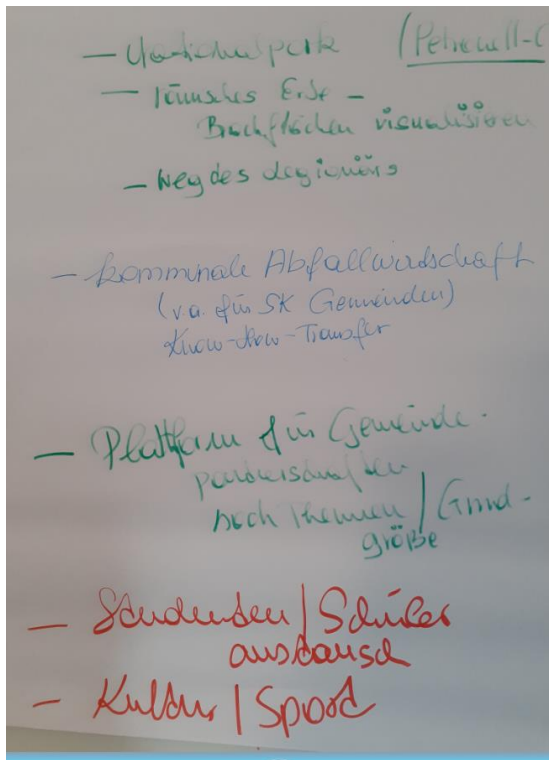 — Nationalpark (Petronell-C
— römisches Erbe –
Brachflächen visualisieren
— Weg des Legionärs
— kommunale Abfallwirtschaft
(v.a. für SK Gemeinden)
Know-How-Transfer
— Plattform für Gemeinde-
partnerschaften
nach Themen / Gmd-
größe
— Studenten / Schüler
austausch
— Kultur / Sport